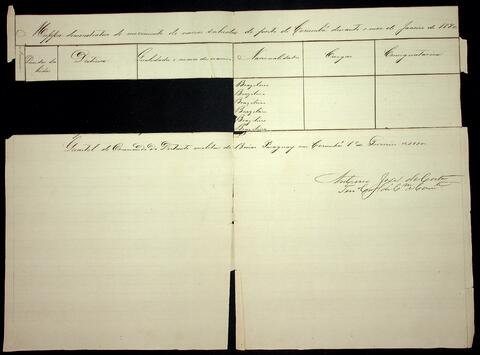 Mappa demonstrativo do movimento de navios sahidos do porto de Corumbá durante o mez de Janeiro de 1880
Destino Qualidades e nomes dos navios Nacionalidades Cargas Consignatarios
Brazileiro
Brazileiro
Brazileiro
Brazileiro
Brazileiro
Brazileiro
Quartel do Commando do Districto militar do Baixo Paraguay em Corumbá 1º de Fevereiro de 1880.
Antonio José da Costa
Ten.e Cor.el